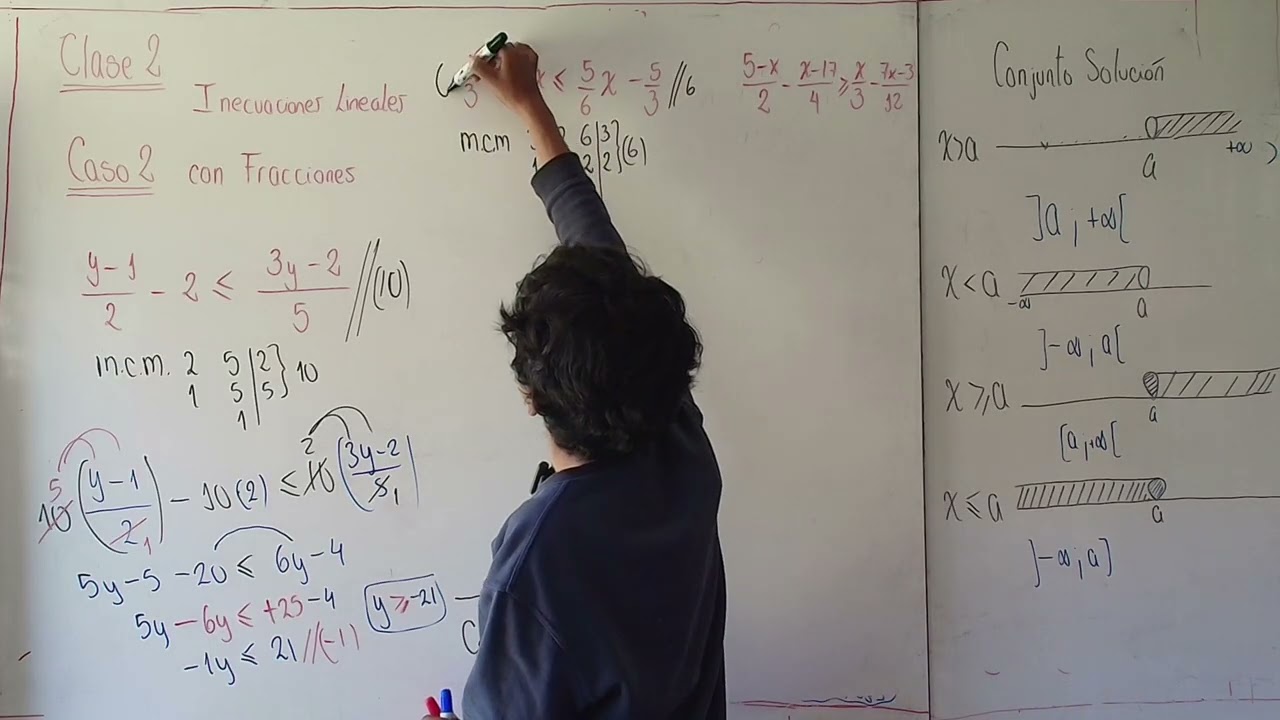 Clase 2
Inecuaciones Lineales
Caso 2 con Fracciones
(y-1)/2 - 2 ≤ (3y-2)/5 //(10)
m.c.m. 2 5|2
1 5|5 } 10
1|
10((y-1)/2) - 10(2) ≤ 10((3y-2)/5)
5 1 2 1
5y-5-20 ≤ 6y-4
5y-6y ≤ +25-4
-1y ≤ 21 //(-1)
y ≥ -21
3 x ≤ 5/6 x - 5/3 //6
m.c.m 6|3
2|2 } (6)
(5-x)/2 - (x-17)/4 ≥ x/3 - (7x-3)/12
Conjunto Solución
x>a
a +∞
]a ; +∞[
x<a
-∞ a
]-∞ ; a[
x ≥ a
a
[a ; +∞[
x ≤ a
a
]-∞ ; a]